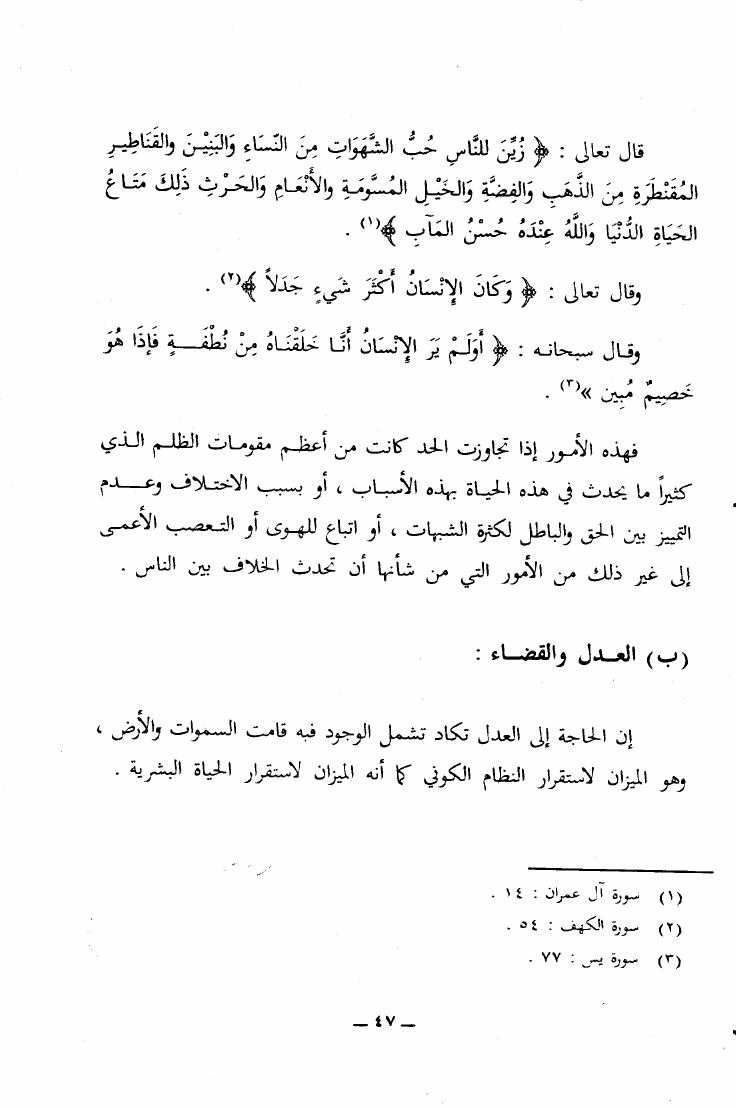 قال تعالى : ﴿ زُيِّنَ للنَّاسِ حُبُّ الشَّهَوَاتِ مِنَ النِّسَاءِ وَالبَنِيْنَ والقَنَاطِيرِ
المُقَنْطَرَةِ مِنَ الذَّهَبِ وَالفِضَّةِ وَالخَيْلِ المُسَوَّمَةِ والأَنْعَامِ وَالحَرْثِ ذَلِكَ مَتَاعُ
الحَيَاةِ الدُّنْيَا وَاللَّهُ عِنْدَهُ حُسْنُ المَآبِ ﴾(١) .
وقال تعالى : ﴿ وَكَانَ الإِنْسَانُ أَكْثَرَ شَيءٍ جَدَلاً ﴾(٢) .
وقال سبحانه : ﴿ أَوَلَمْ يَرَ الإِنْسَانُ أَنَّا خَلَقْنَاهُ مِنْ نُطْفَةٍ فَإِذَا هُوَ
خَصِيمٌ مُبِين »(٣) .
فهذه الأمور إذا تجاوزت الحد كانت من أعظم مقومات الظلم الذي
كثيراً ما يحدث في هذه الحياة بهذه الأسباب ، أو بسبب الاختلاف وعدم
التمييز بين الحق والباطل لكثرة الشبهات ، أو اتباع للهوى أو التعصب الأعمى
إلى غير ذلك من الأمور التي من شأنها أن تحدث الخلاف بين الناس .
(ب) العدل والقضاء :
إن الحاجة إلى العدل تكاد تشمل الوجود فبه قامت السموات والأرض ،
وهو الميزان لاستقرار النظام الكوني كما أنه الميزان لاستقرار الحياة البشرية .
(١) سورة آل عمران : ١٤ .
(٢) سورة الكهف : ٥٤ .
(٣) سورة يس : ٧٧ .
— ٤٧ —